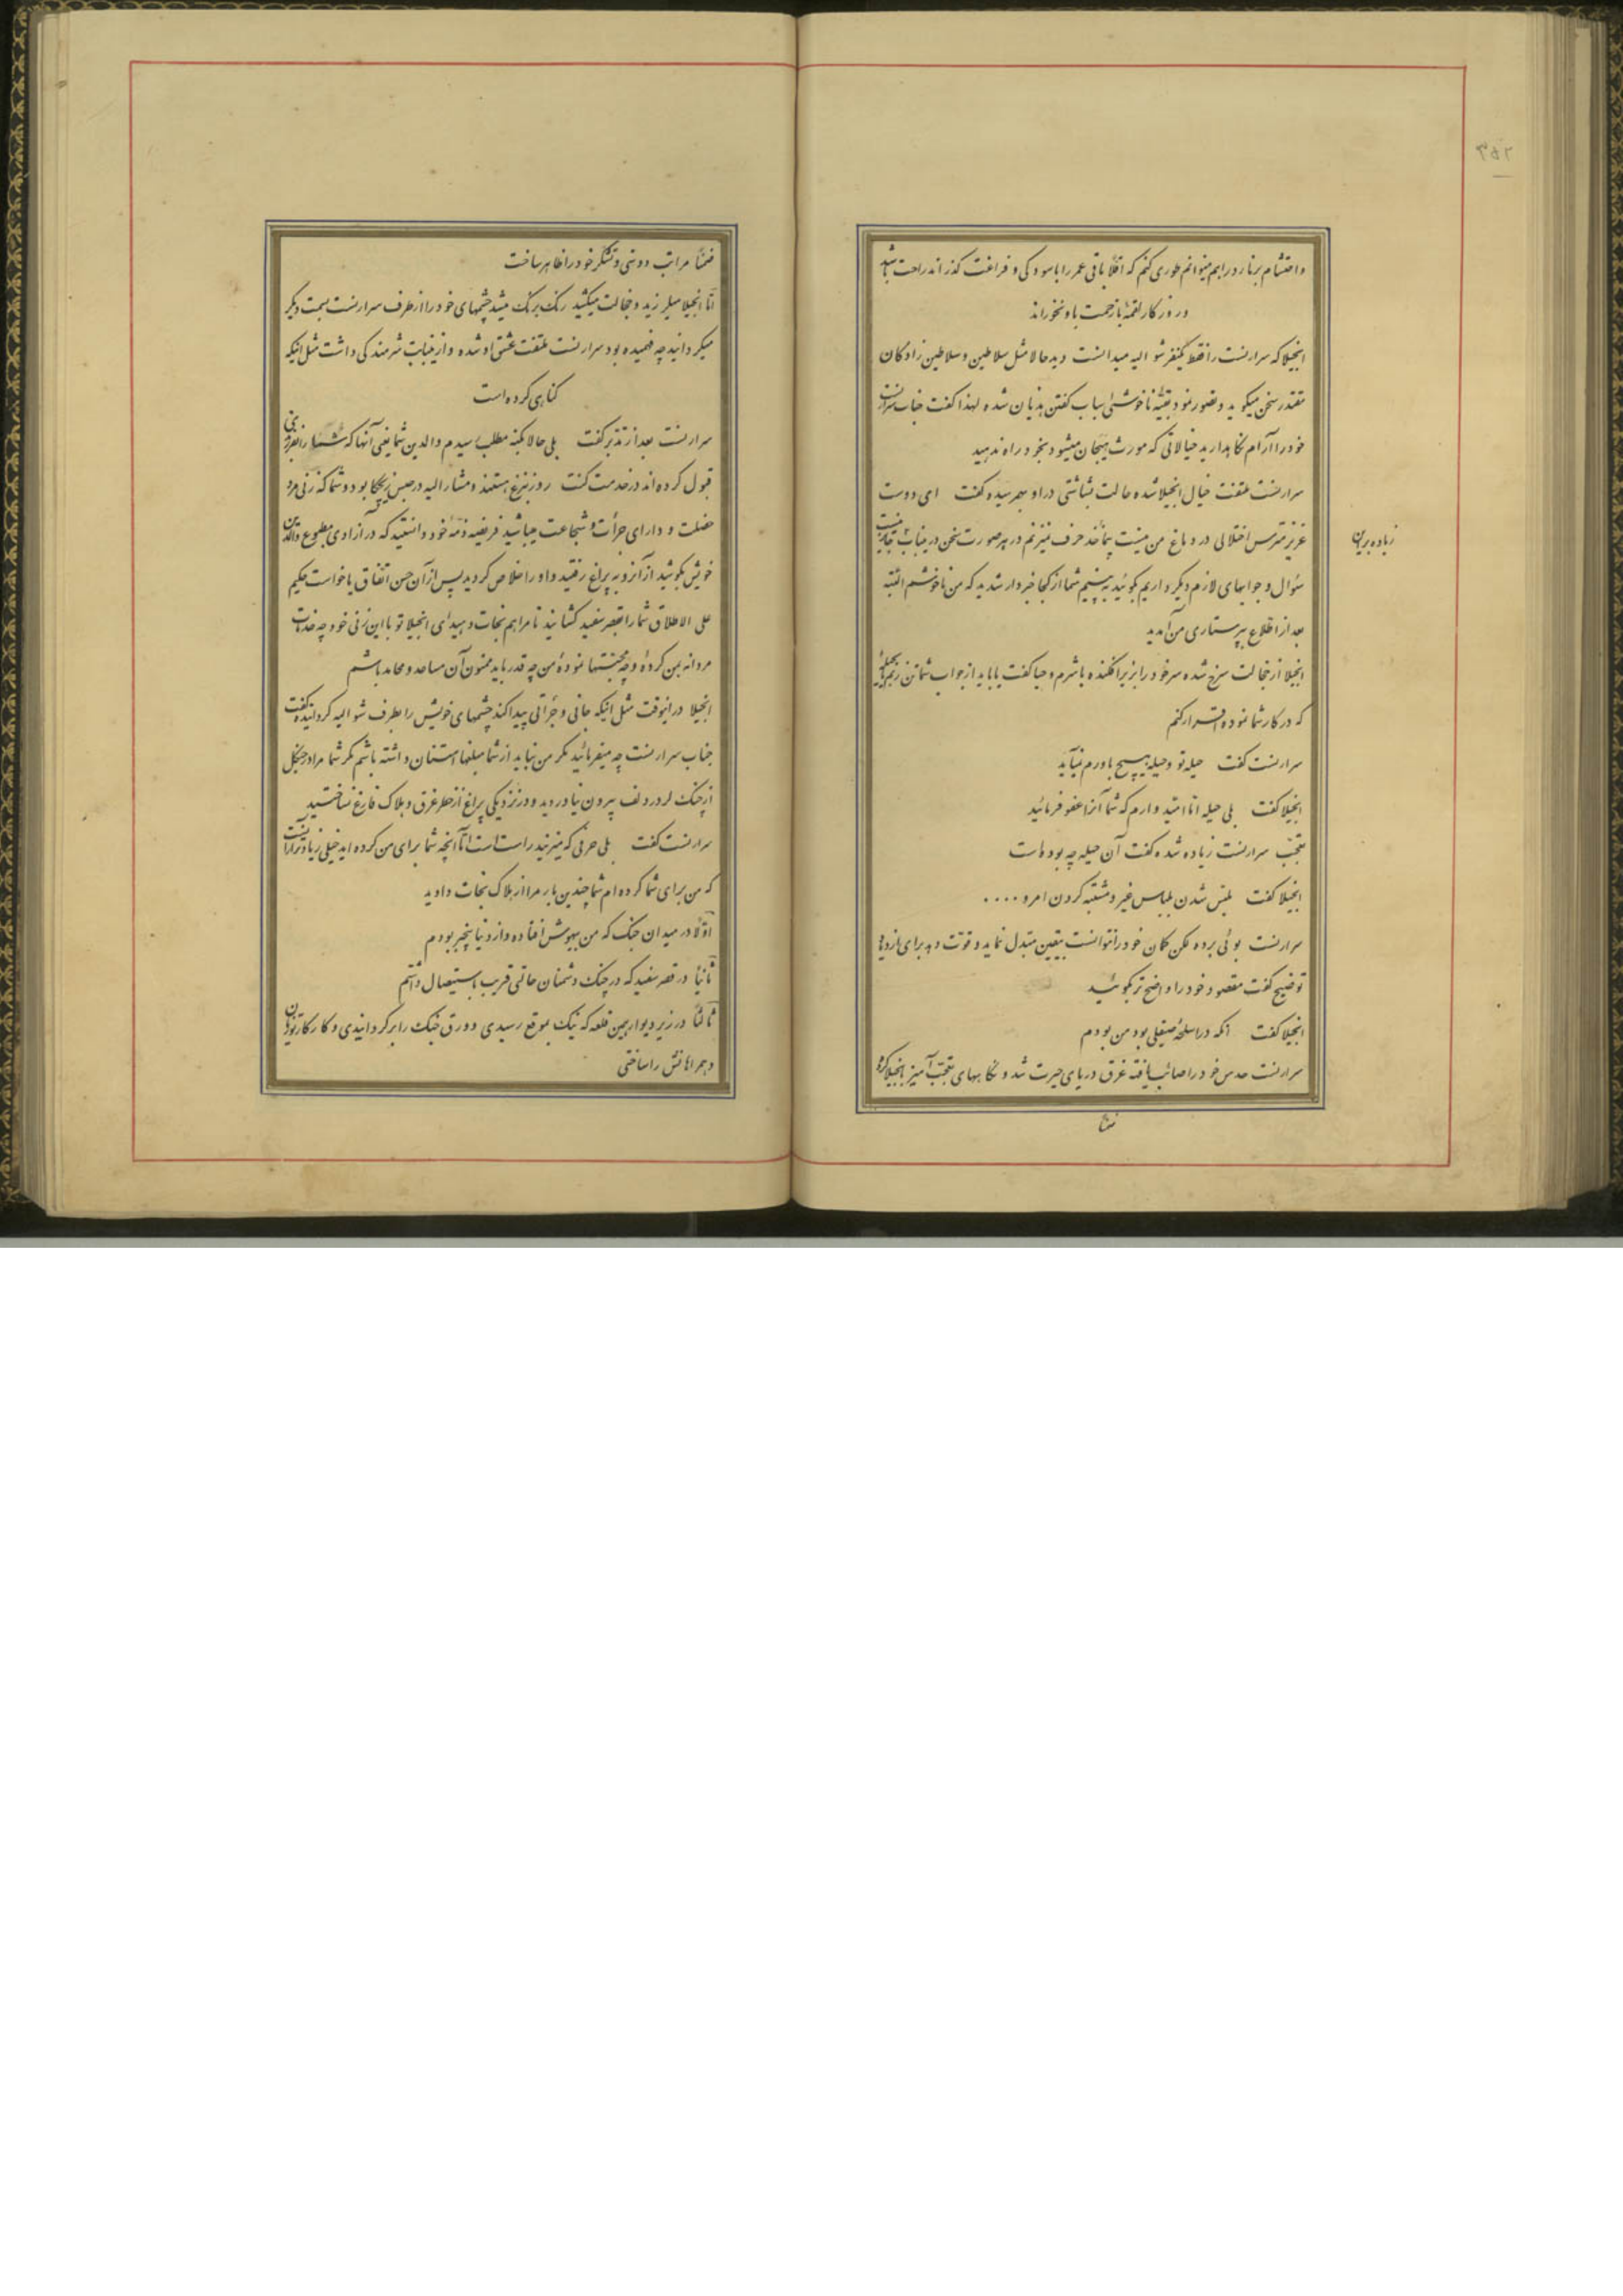 ۲۵۲
و احتشام برنارد را هم میتوانم طوری کنم که اقلاً باقی عمر را باسودگی و فراغت گذراند راحت باشد
و روزگار لقمهٔ بازحمت باو نخوراند
انجیلا که سرارنست را فقط یکنفر شوالیه میدانست دید حالا مثل سلاطین و سلاطین زادگان
مقتدر سخن میگوید و تصور نمود بقیّه ناخوشی اسباب گفتن هذیان شده لهذا گفت جناب سرارنست
خود را آرام نگاهدارید خیالاتی که مورث هیجان میشود بخود راه ندهید
سرارنست ملتفت خیال انجیلا شده حالت بشاشتی در او بهمرسیده گفت ای دوست
عزیز مترس اختلالی در دماغ من نیست بمأخذ حرف میزنم در هر صورت سخن در اینباب جایز نیست
زیاده برین
سؤال و جوابهای لازم دیگر داریم بگوئید به بینیم شما از کجا خبردار شدید که من ناخوشم البته
بعد از اطلاع بپرستاری من آمدید
انجیلا از خجالت سرخ شده سر خود را بزیر افکنده باشرم و حیا گفت یا باید از جواب شما تن زنم یا بحیلهٔ
که در کار شما نموده اقرار کنم
سرارنست گفت حیله تو و حیله بهیچ باورم نیآید
انجیلا گفت بلی حیله اما امید وارم که شما آنرا عفو فرمائید
تعجّب سرارنست زیاده شده گفت آن حیله چه بوده است
انجیلا گفت ملبّس شدن بلباس غیر و مشتبه کردن امر و ....
سرارنست بوئی برده لکن گمان خود را نتوانست بیقین مبدل نماید و قوّت دهد برای ازدیاد
توضیح گفت مقصود خود را واضح تر بگوئید
انجیلا گفت آنکه در اسلحهٔ صیقلی بود من بودم
سرارنست حدس خود را صائب یافته غرق دریای حیرت شد و نگاههای تعجّب آمیز بانجیلا کرد
ضمناً
ضمناً مراتب دوستی و تشکر خود را ظاهر ساخت
امّا انجیلا میلرزید و خجالت میکشید رنک برنک میشد چشمهای خود را از طرف سرارنست بسمت دیگر
میگردانید چه فهمیده بود سرارنست ملتفت عشق او شده و از اینبابت شرمندگی داشت مثل اینکه
گناهی کرده است
سرارنست بعد از تدبّر گفت بلی حالا بکنه مطلب رسیدم والدین شما یعنی آنها که شما را بفرزندی
قبول کرده اند در خدمت کنت روزنبرغ هستند و مشارالیه در حبس زیگا بود و شما که زنی مرد
خصلت و دارای جرأت و شجاعت میباشید فریضه ذمّه خود دانستید که در آزادی مطبوع والدین
خویش بکوشید از آنرو به پراغ رفتید و او را خلاص کردید پس از آن حسن اتفاق یا خواست حکیم
علی الاطلاق شما را بقصر سفید کشانید تا مرا هم نجات دهید ای انجیلا تو با این زنی خود چه خدمات
مردانه بمن کردهٔ و چه محبّتها نمودهٔ من چه قدر باید ممنون آن مساعد و محامد باشم
انجیلا در اینوقت مثل اینکه جانی و جرأتی پیدا کند چشمهای خویش را بطرف شوالیه گردانیده گفت
جناب سرارنست چه میفرمائید مگر من نباید از شما مبلغها امتنان داشته باشم مگر شما مرا در جنگل
از چنک لردردلف بیرون نیاوردید و در نزدیکی پراغ از خطر غرق و هلاک فارغ نساختید
سرارنست گفت بلی حرفی که میزنید راست است امّا آنچه شما برای من کرده اید خیلی زیادتر از آنست
که من برای شما کرده ام شما چندین بار مرا از هلاک نجات دادید
اوّلاً در میدان جنک که من بیهوش افتاده و از دنیا بیخبر بودم
ثانیاً در قصر سفید که در چنک دشمنان حالتی قریب باستیصال داشتم
ثالثاً در زیر دیوار همین قلعه که نیک بموقع رسیدی و ورق جنک را برگردانیدی و کار کارتوران
و همراهانش را ساختی